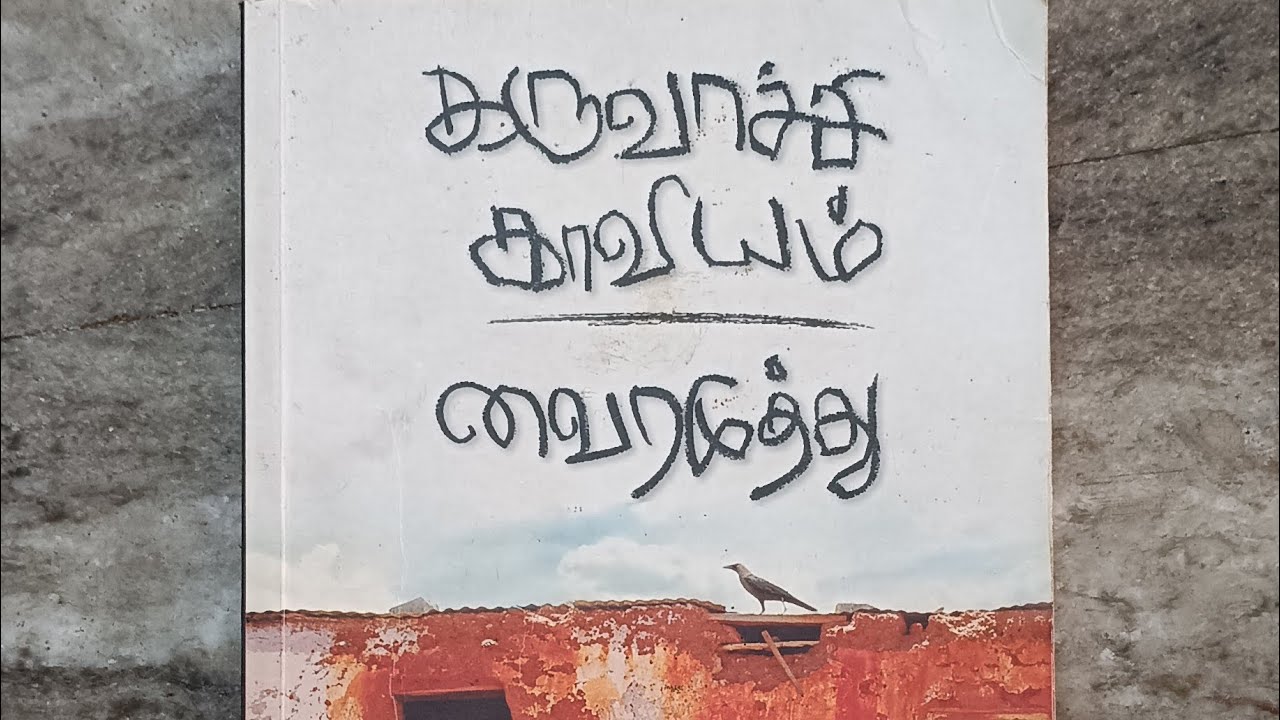 கருவாச்சி
காவியம்
வைரமுத்து